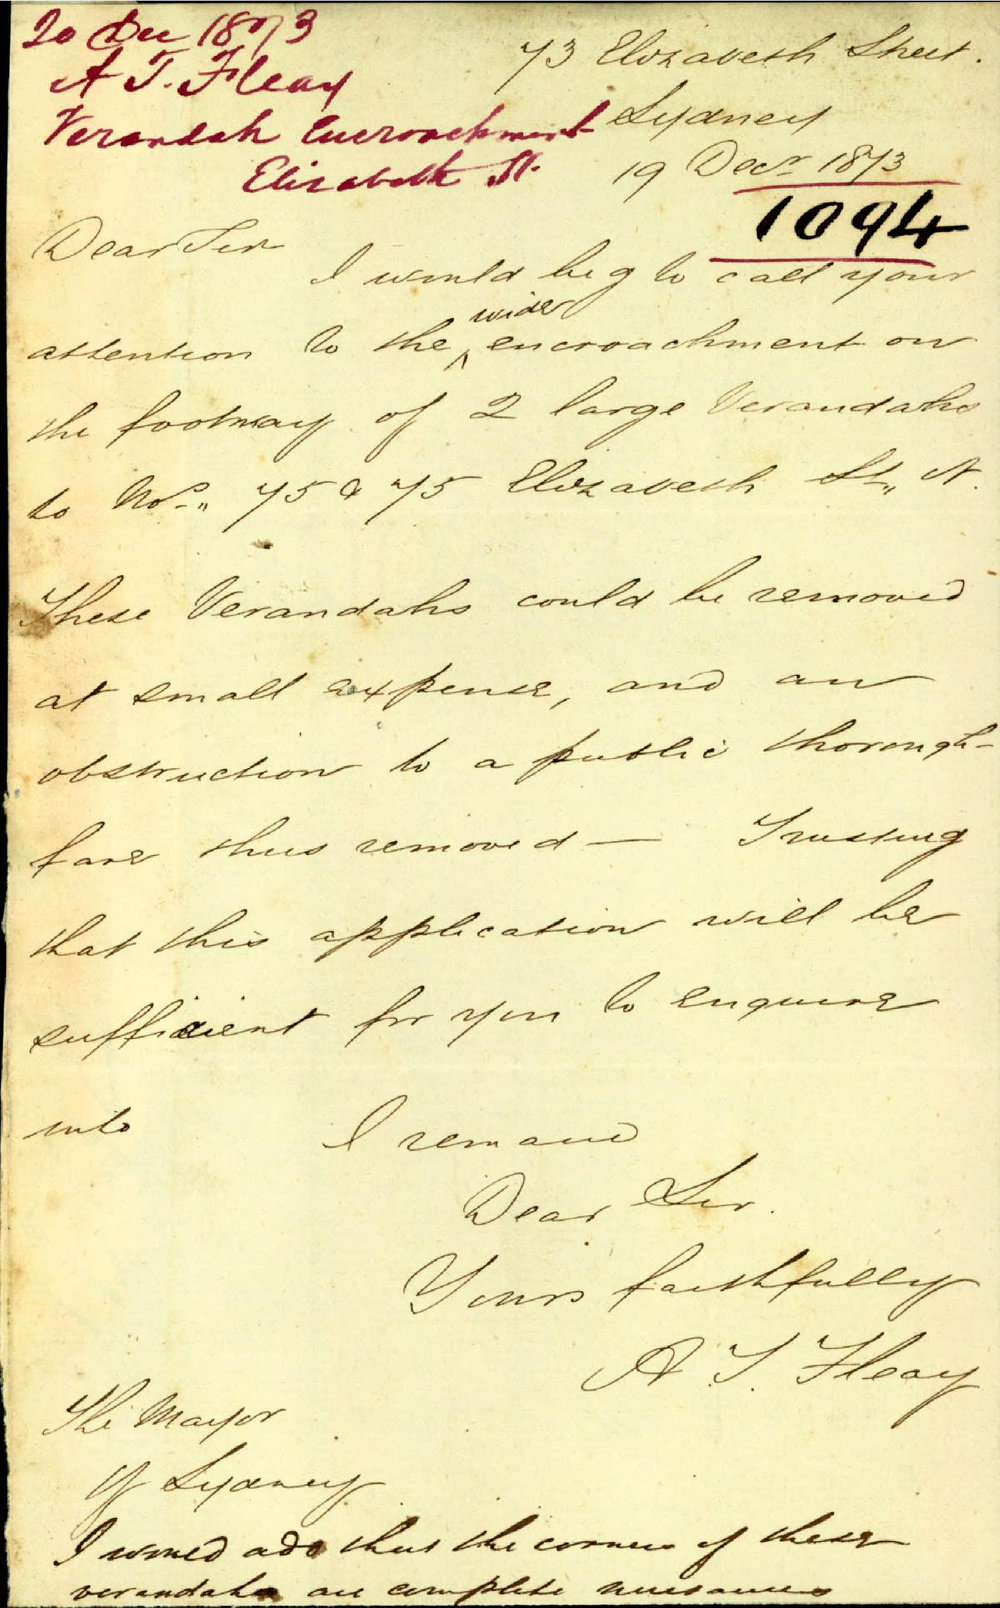 20 Dec 1873
A T. Fleay
Verandah Encroachment
Elizabeth St.
73 Elizabeth Street.
Sydney
19 Decr 1873
1094
Dear Sir
I would beg to call your
wider
attention to the ^ encroachment on
the footway of 2 large Verandahs
to Nos. 75 & 75 Elizabeth St,, N.
These Verandahs could be removed
at small expense, and an
obstruction to a public thorough-
fare thus removed — Trusting
that this application will be
sufficient for you to enquire
into
I remain
Dear Sir.
Yours faithfully
A T. Fleay
The Mayor
of Sydney
I would add that the corners of these
verandahs are complete nuisances